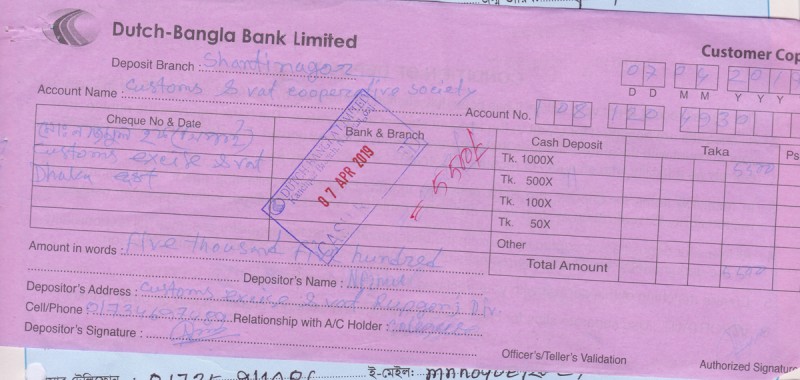 Dutch-Bangla Bank Limited
Customer Cop
Deposit Branch : Shantinagor
07 04 201
D D M M Y Y Y
Account Name : Customs & vat cooperative society
Account No. 108 120 4930
Cheque No & Date Bank & Branch Cash Deposit Taka Ps
Customs excise & vat
Dhaka
DUTCH BANGLA BANK LIMITED
07 APR 2019
5500/
Tk. 1000X 5500
Tk. 500X
Tk. 100X
Tk. 50X
Other
Total Amount 5500
Amount in words : five thousand five hundred
Depositor's Name :
Depositor's Address : Customs excise & vat Rupgonj Div.
Cell/Phone Relationship with A/C Holder :
Depositor's Signature :
Officer's/Teller's Validation
Authorized Signature
ই-মেইল: